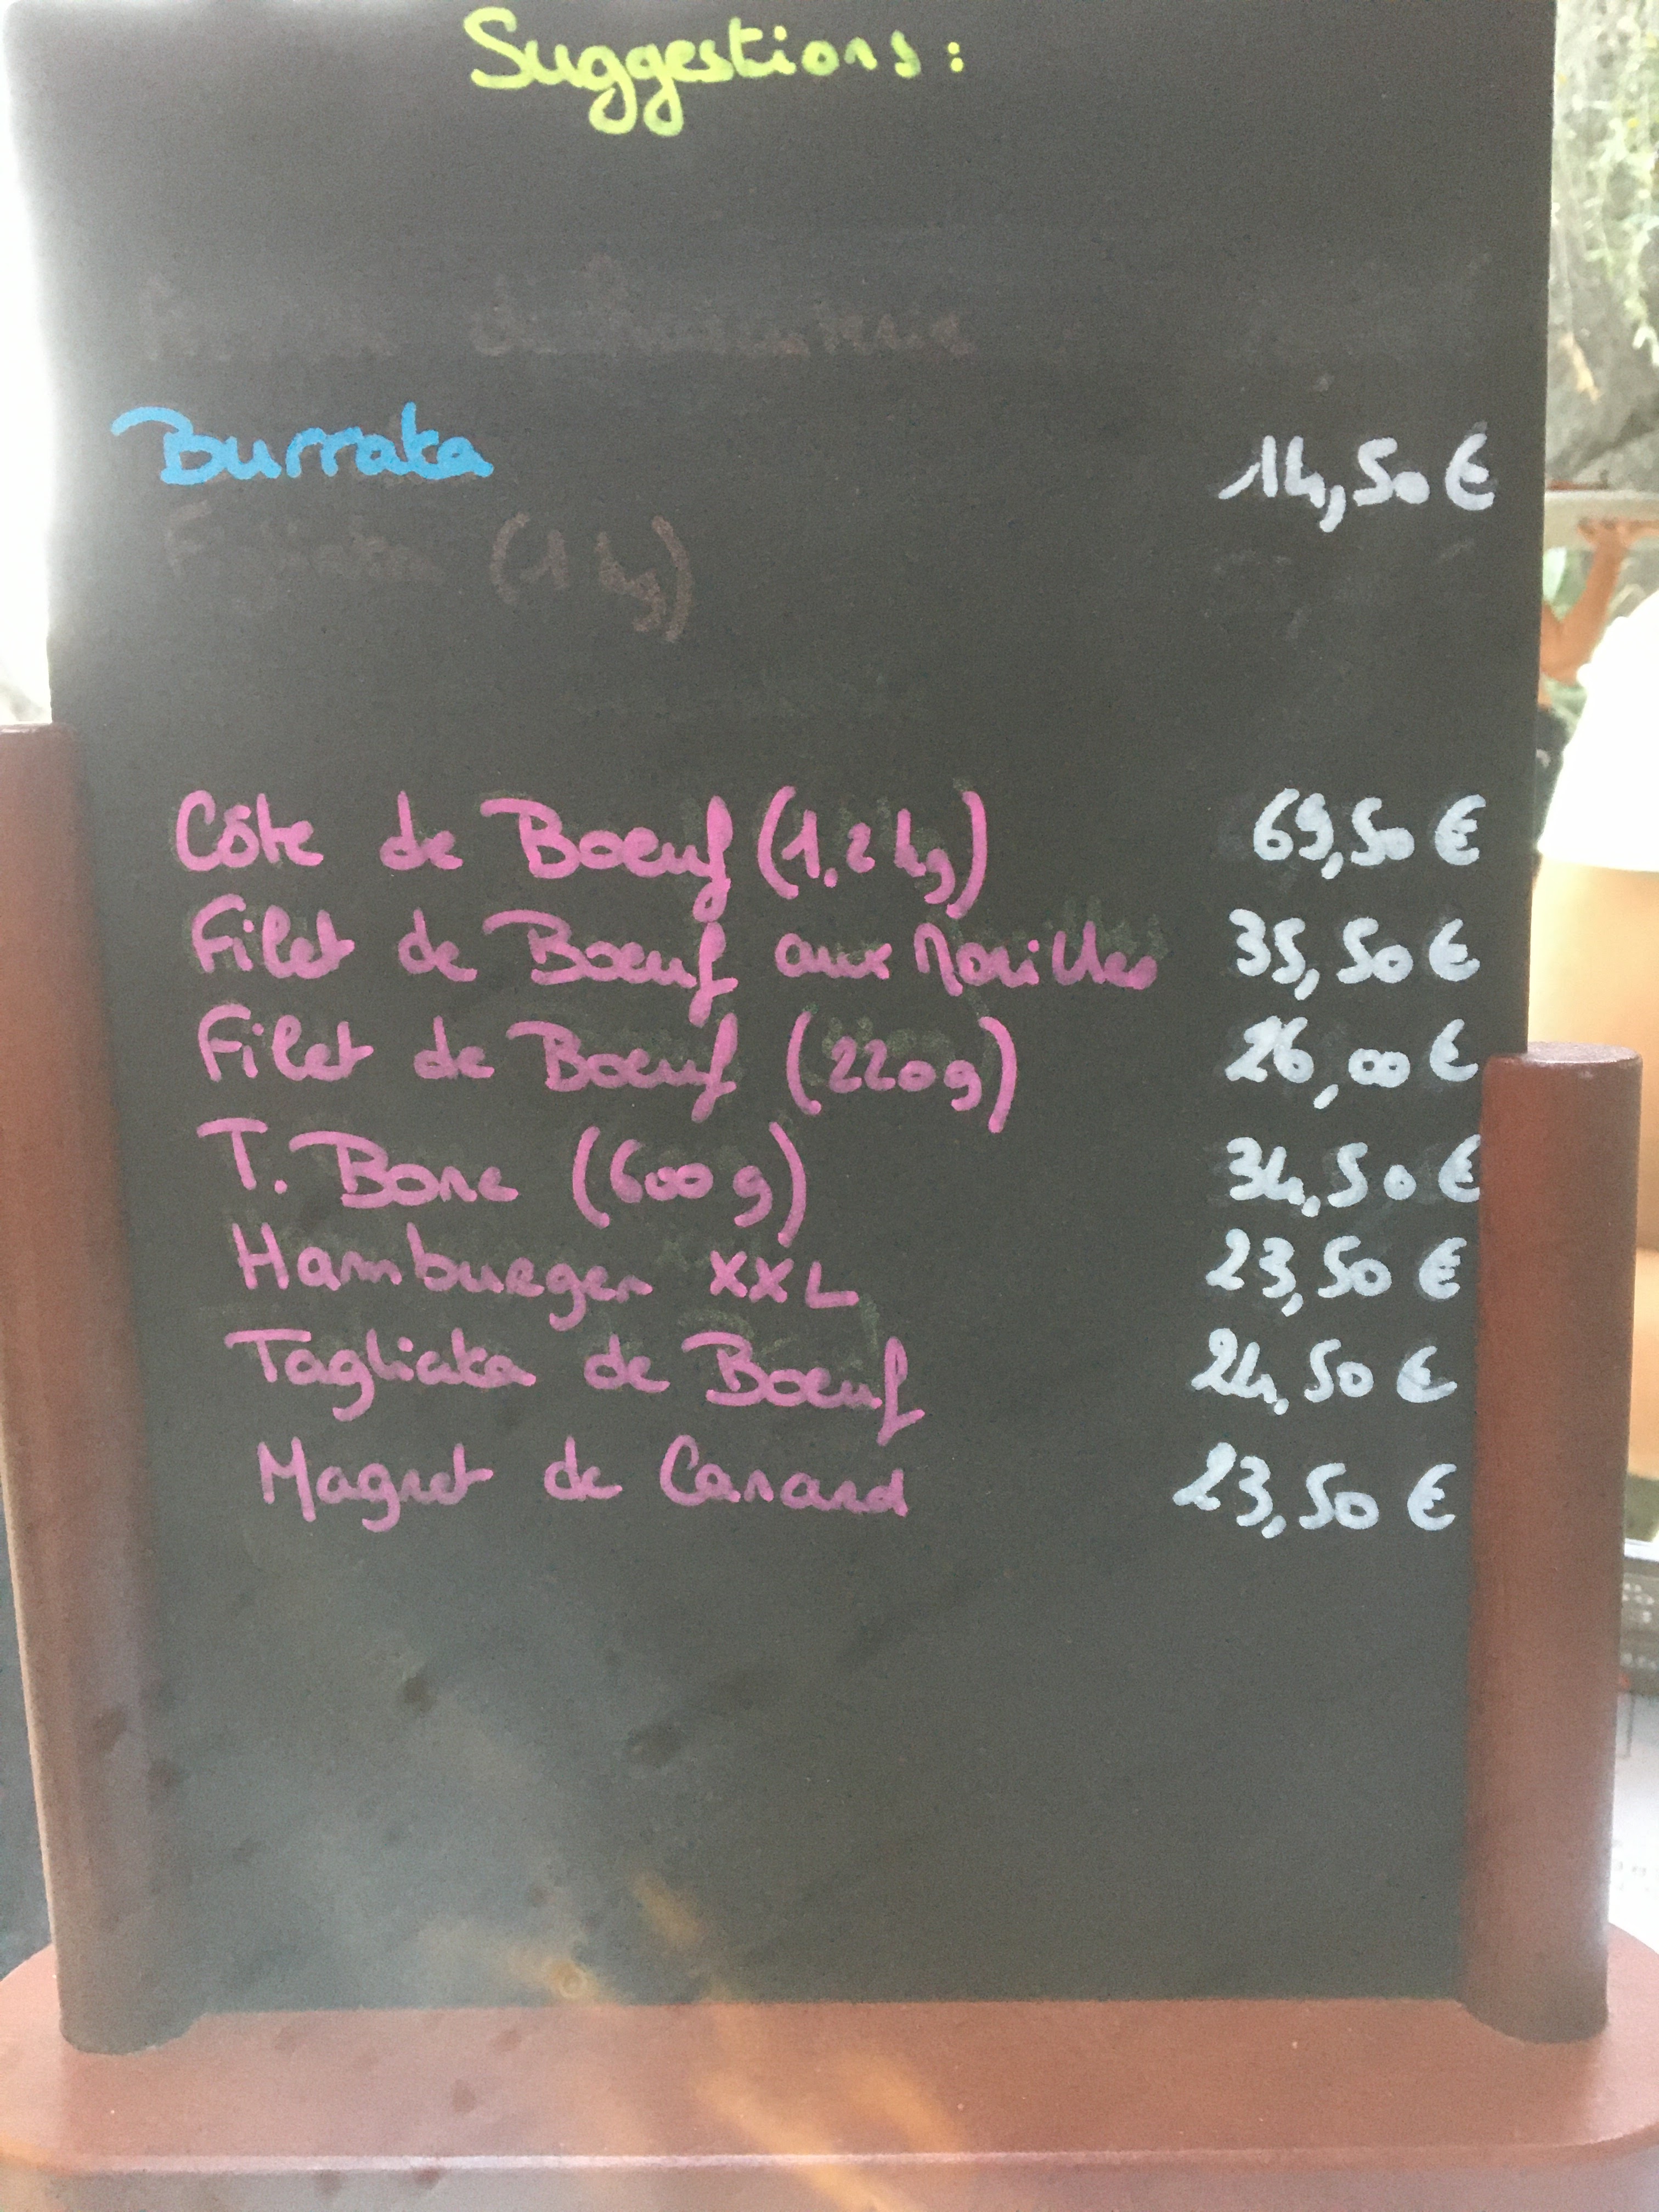 Suggestions :
Burrata 14,50 €
(1 kg)
Côte de Boeuf (1,2 kg) 69,50 €
Filet de Boeuf aux Morilles 35,50 €
Filet de Boeuf (220 g) 26,00 €
T. Bone (600 g) 34,50 €
Hamburger XXL 23,50 €
Tagliata de Boeuf 24,50 €
Magret de Canard 23,50 €